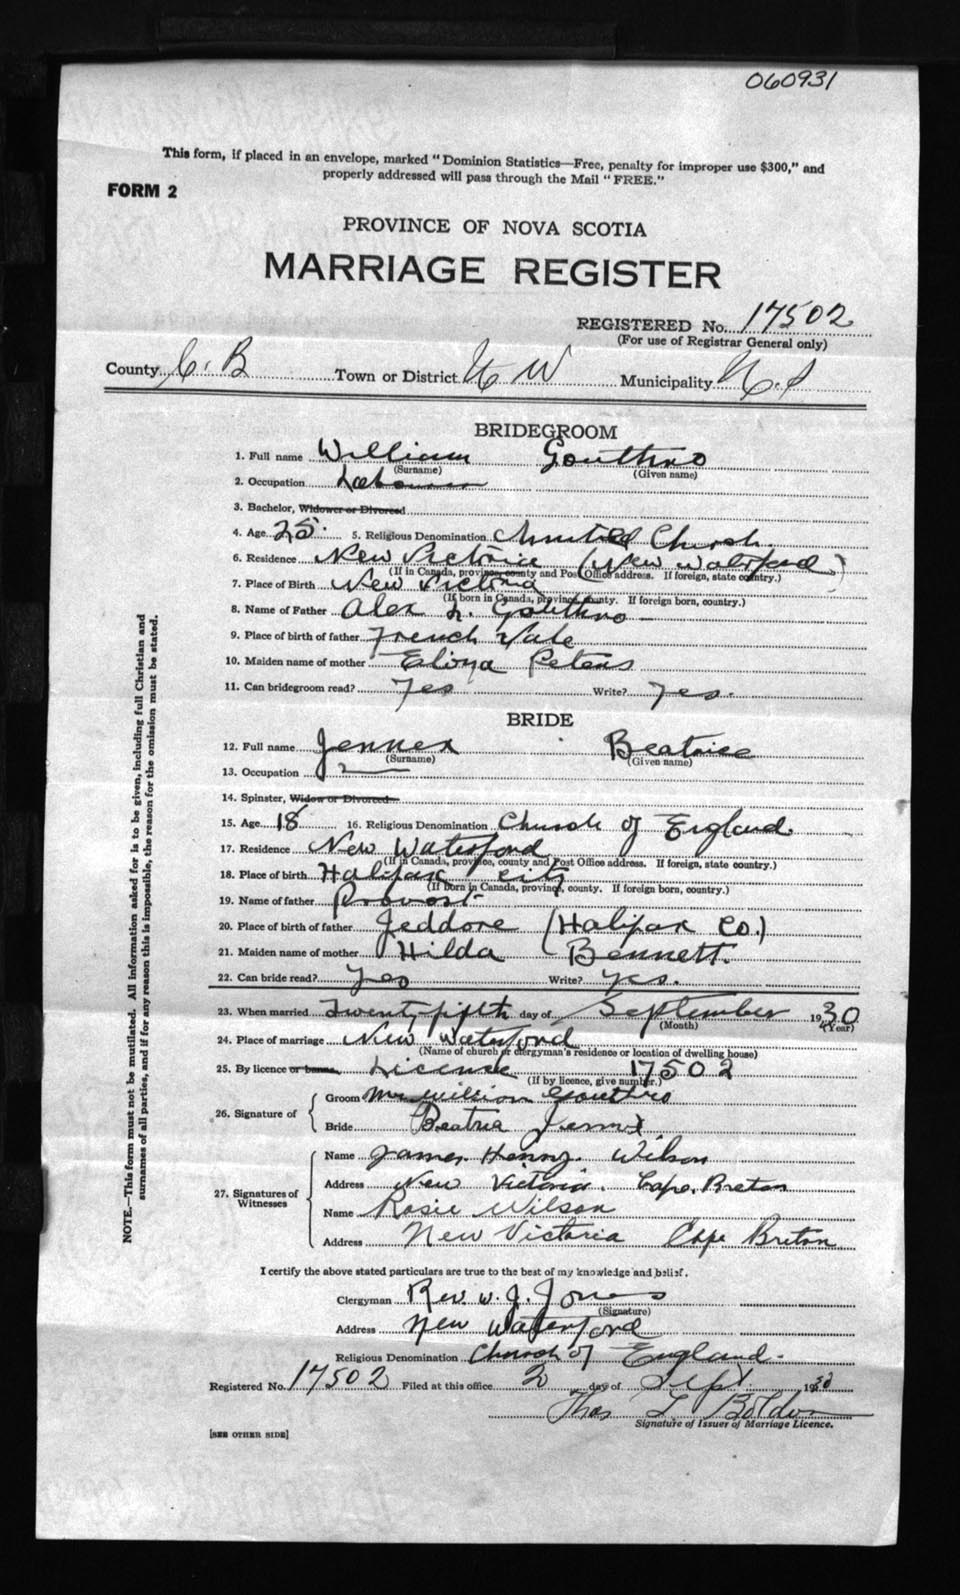 060931
This form, if placed in an envelope, marked "Dominion Statistics—Free, penalty for improper use $300," and
properly addressed will pass through the Mail "FREE."
FORM 2
PROVINCE OF NOVA SCOTIA
MARRIAGE REGISTER
REGISTERED No. 17502
(For use of Registrar General only)
County C. B Town or District N W Municipality N. S
BRIDEGROOM
1. Full name William Gouthro
(Surname) (Given name)
2. Occupation Labourer
3. Bachelor, Widower or Divorced
4. Age 25. 5. Religious Denomination United Church
6. Residence New Victoria (New Waterford)
(If in Canada, province, county and Post Office address. If foreign, state country.)
7. Place of Birth New Victoria
(If born in Canada, province, county. If foreign born, country.)
8. Name of Father Alex Gouthro
9. Place of birth of father French Vale
10. Maiden name of mother Peters
11. Can bridegroom read? Yes Write? Yes.
BRIDE
12. Full name Jennex Beatrice
(Surname) (Given name)
13. Occupation
14. Spinster, Widow or Divorced
15. Age 18 16. Religious Denomination Church of England.
17. Residence New Waterford
(If in Canada, province, county and Post Office address. If foreign, state country.)
18. Place of birth Halifax city
(If born in Canada, province, county. If foreign born, country.)
19. Name of father Provost
20. Place of birth of father Jeddore (Halifax Co.)
21. Maiden name of mother Hilda Bennett.
22. Can bride read? Yes Write? Yes.
23. When married Twenty-fifth day of September 1930
(Month) (Year)
24. Place of marriage New Waterford
(Name of church or clergyman's residence or location of dwelling house)
25. By licence or banns License 17502
(If by licence, give number.)
26. Signature of
Groom Mr William Gouthro
Bride Beatrice
27. Signatures of Witnesses
Name James Henry Wilson
Address New Victoria. Cape Breton
Name Rosie Wilson
Address New Victoria Cape Breton
I certify the above stated particulars are true to the best of my knowledge and belief.
Clergyman Rev. W. J. Jones
(Signature)
Address New Waterford
Religious Denomination Church of England.
Registered No. 17502 Filed at this office 2 day of Sept 1930
Thos L Boldon
Signature of Issuer of Marriage Licence.
[SEE OTHER SIDE]
NOTE.—This form must not be mutilated. All information asked for is to be given, including full Christian and
surnames of all parties, and if for any reason this is impossible, the reason for the omission must be stated.